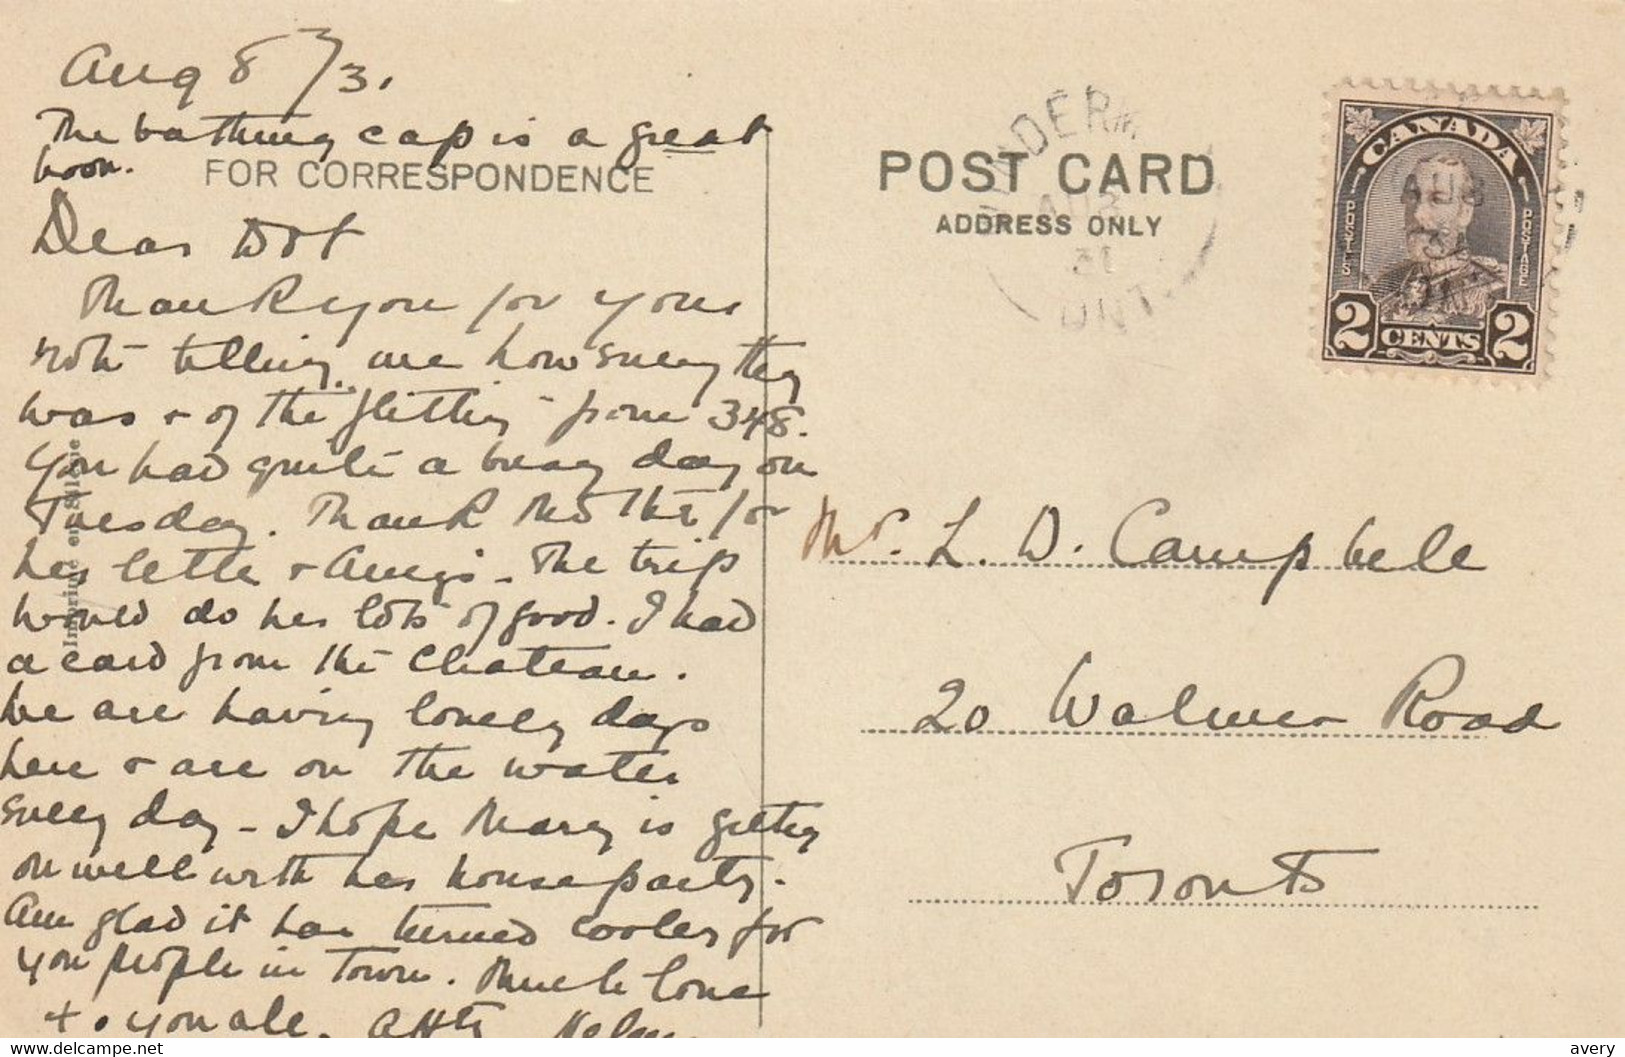 Aug 8/31
The bathing cap is a great
boon.
FOR CORRESPONDENCE
Dear Dot
Thank you for your
note telling me how every thing
was + of the flitting from 348.
You had quite a busy day on
Tuesday. Thank Mother for
her letter + Amy's - The trip
would do her lots of good. I had
a card from the Chateau.
We are having lovely days
here + are on the water
every day - I hope Mary is getting
on well with her house party.
Am glad it has turned cooler for
you people in Town. Much love
to you all. Affly Helen
POST CARD
ADDRESS ONLY
WINDERMERE
AUG 8
31
ONT.
CANADA
POSTES POSTAGE
AUG 8
31
2 CENTS 2
Mr. L. D. Campbell
20 Walmer Road
Toronto
delcampe.net
avery